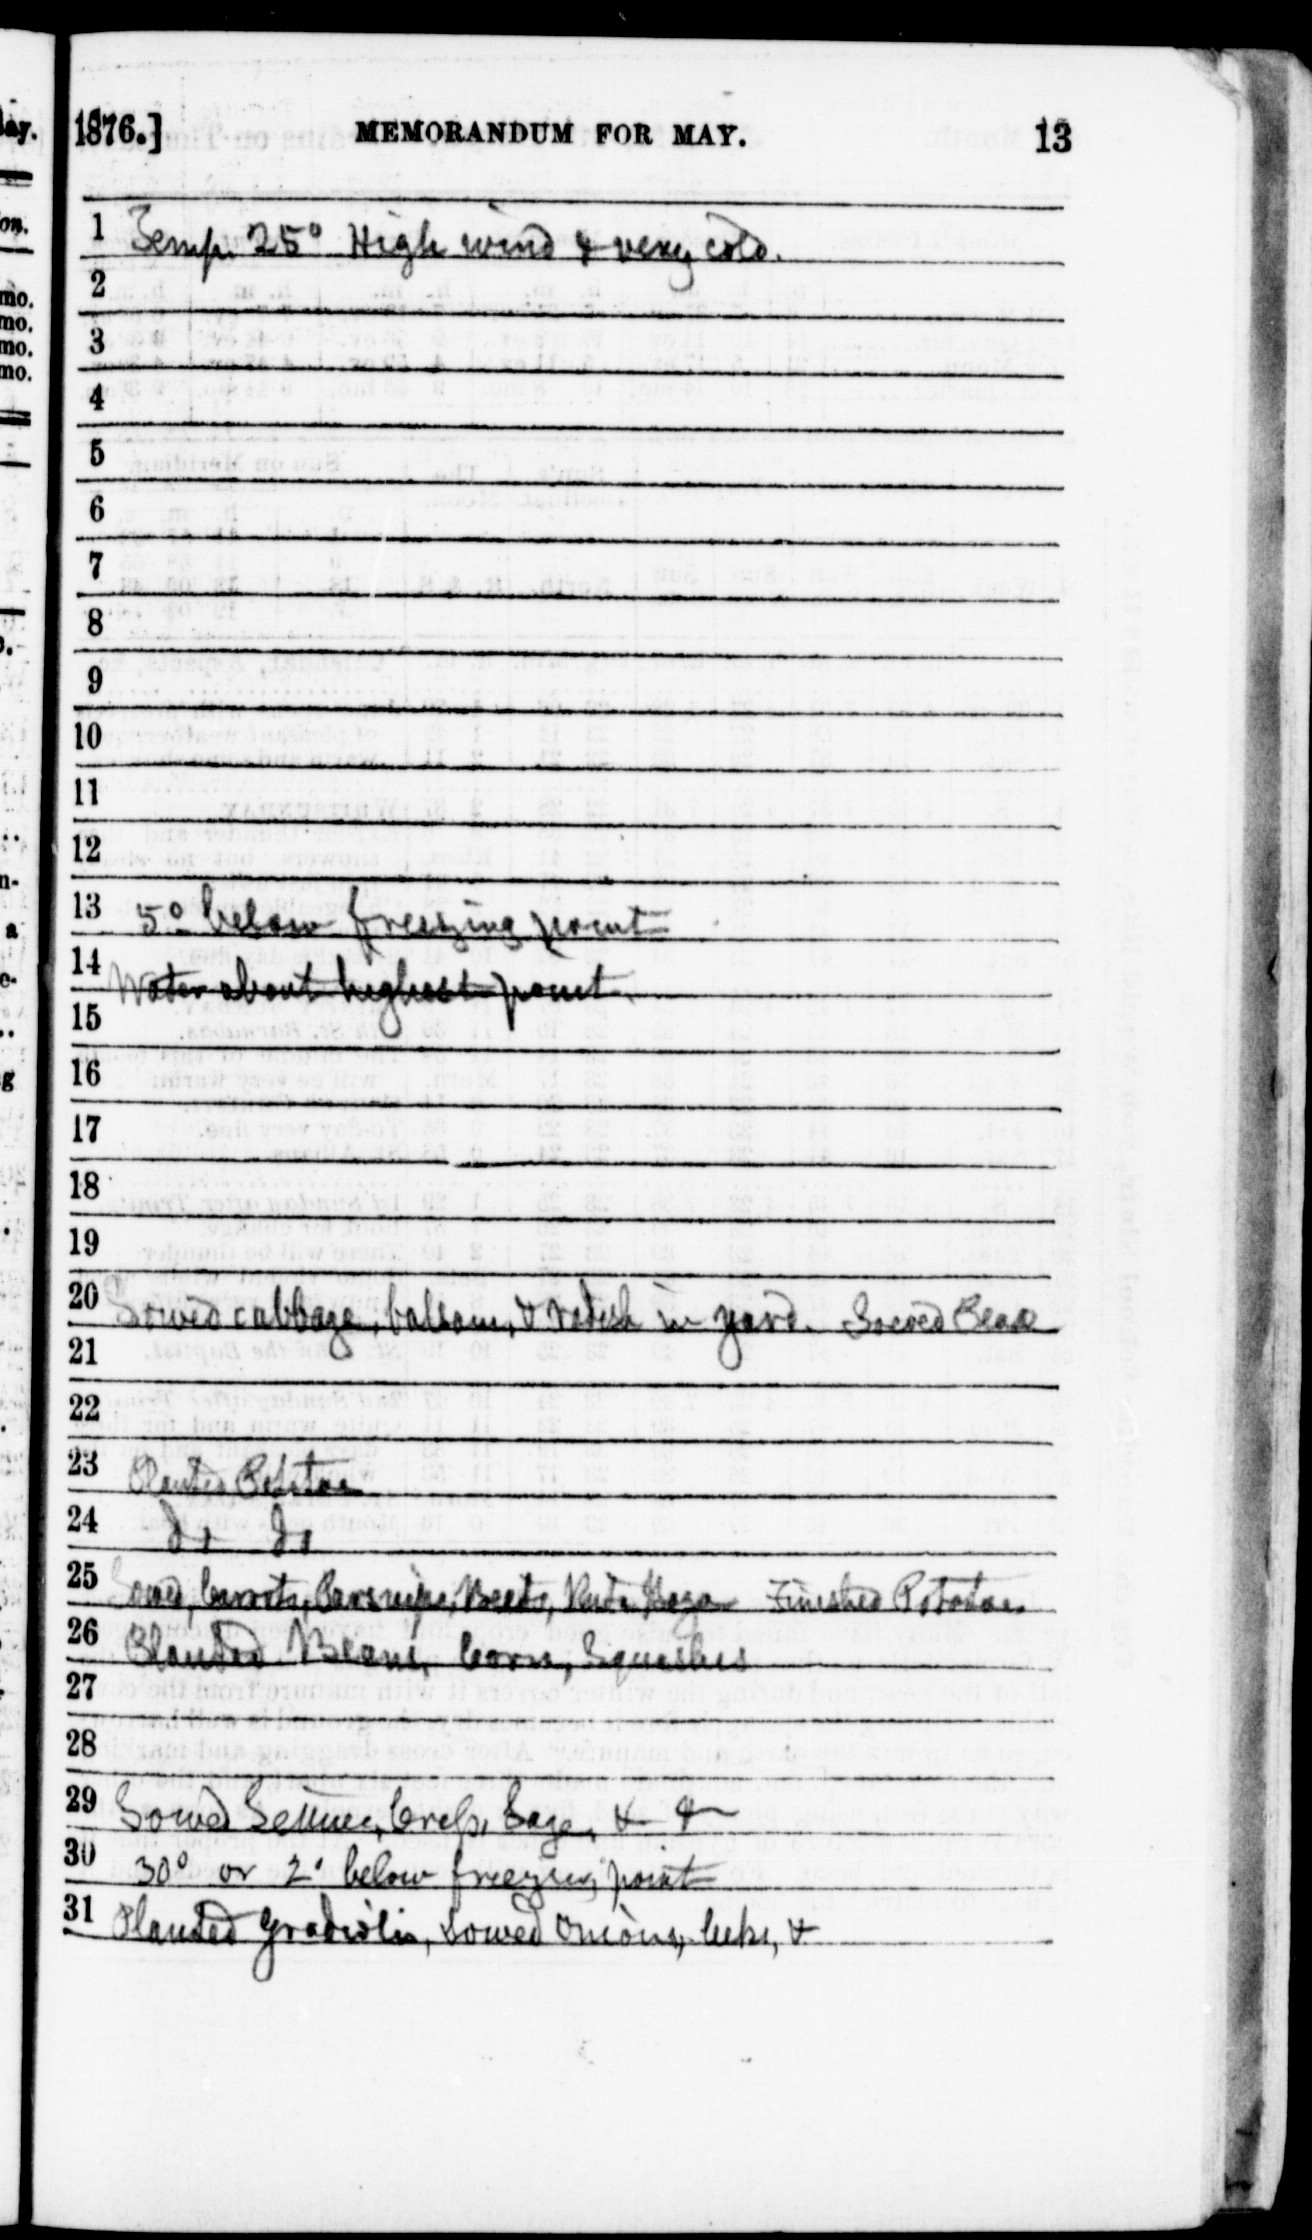 1876.] MEMORANDUM FOR MAY. 13
1 Temp. 25° High wind & very cold.
2
3
4
5
6
7
8
9
10
11
12
13 5° below freezing point
14 Water about highest point.
15
16
17
18
19
20 Sowed cabbage, balsam, & radish in yard. Sowed Peas
21
22
23 Planted Potatoes
24 do do
25 Sowed, Carrots, Parsnips, Beets, Ruta Baga Finished Potatoes
26 Planted Beans, Corn, Squashes
27
28
29 Sowed Lettuce, Cress, Sage, & &
30 30° or 2° below freezing point
31 Planted Gradiolis, Sowed Onions, leeks, &